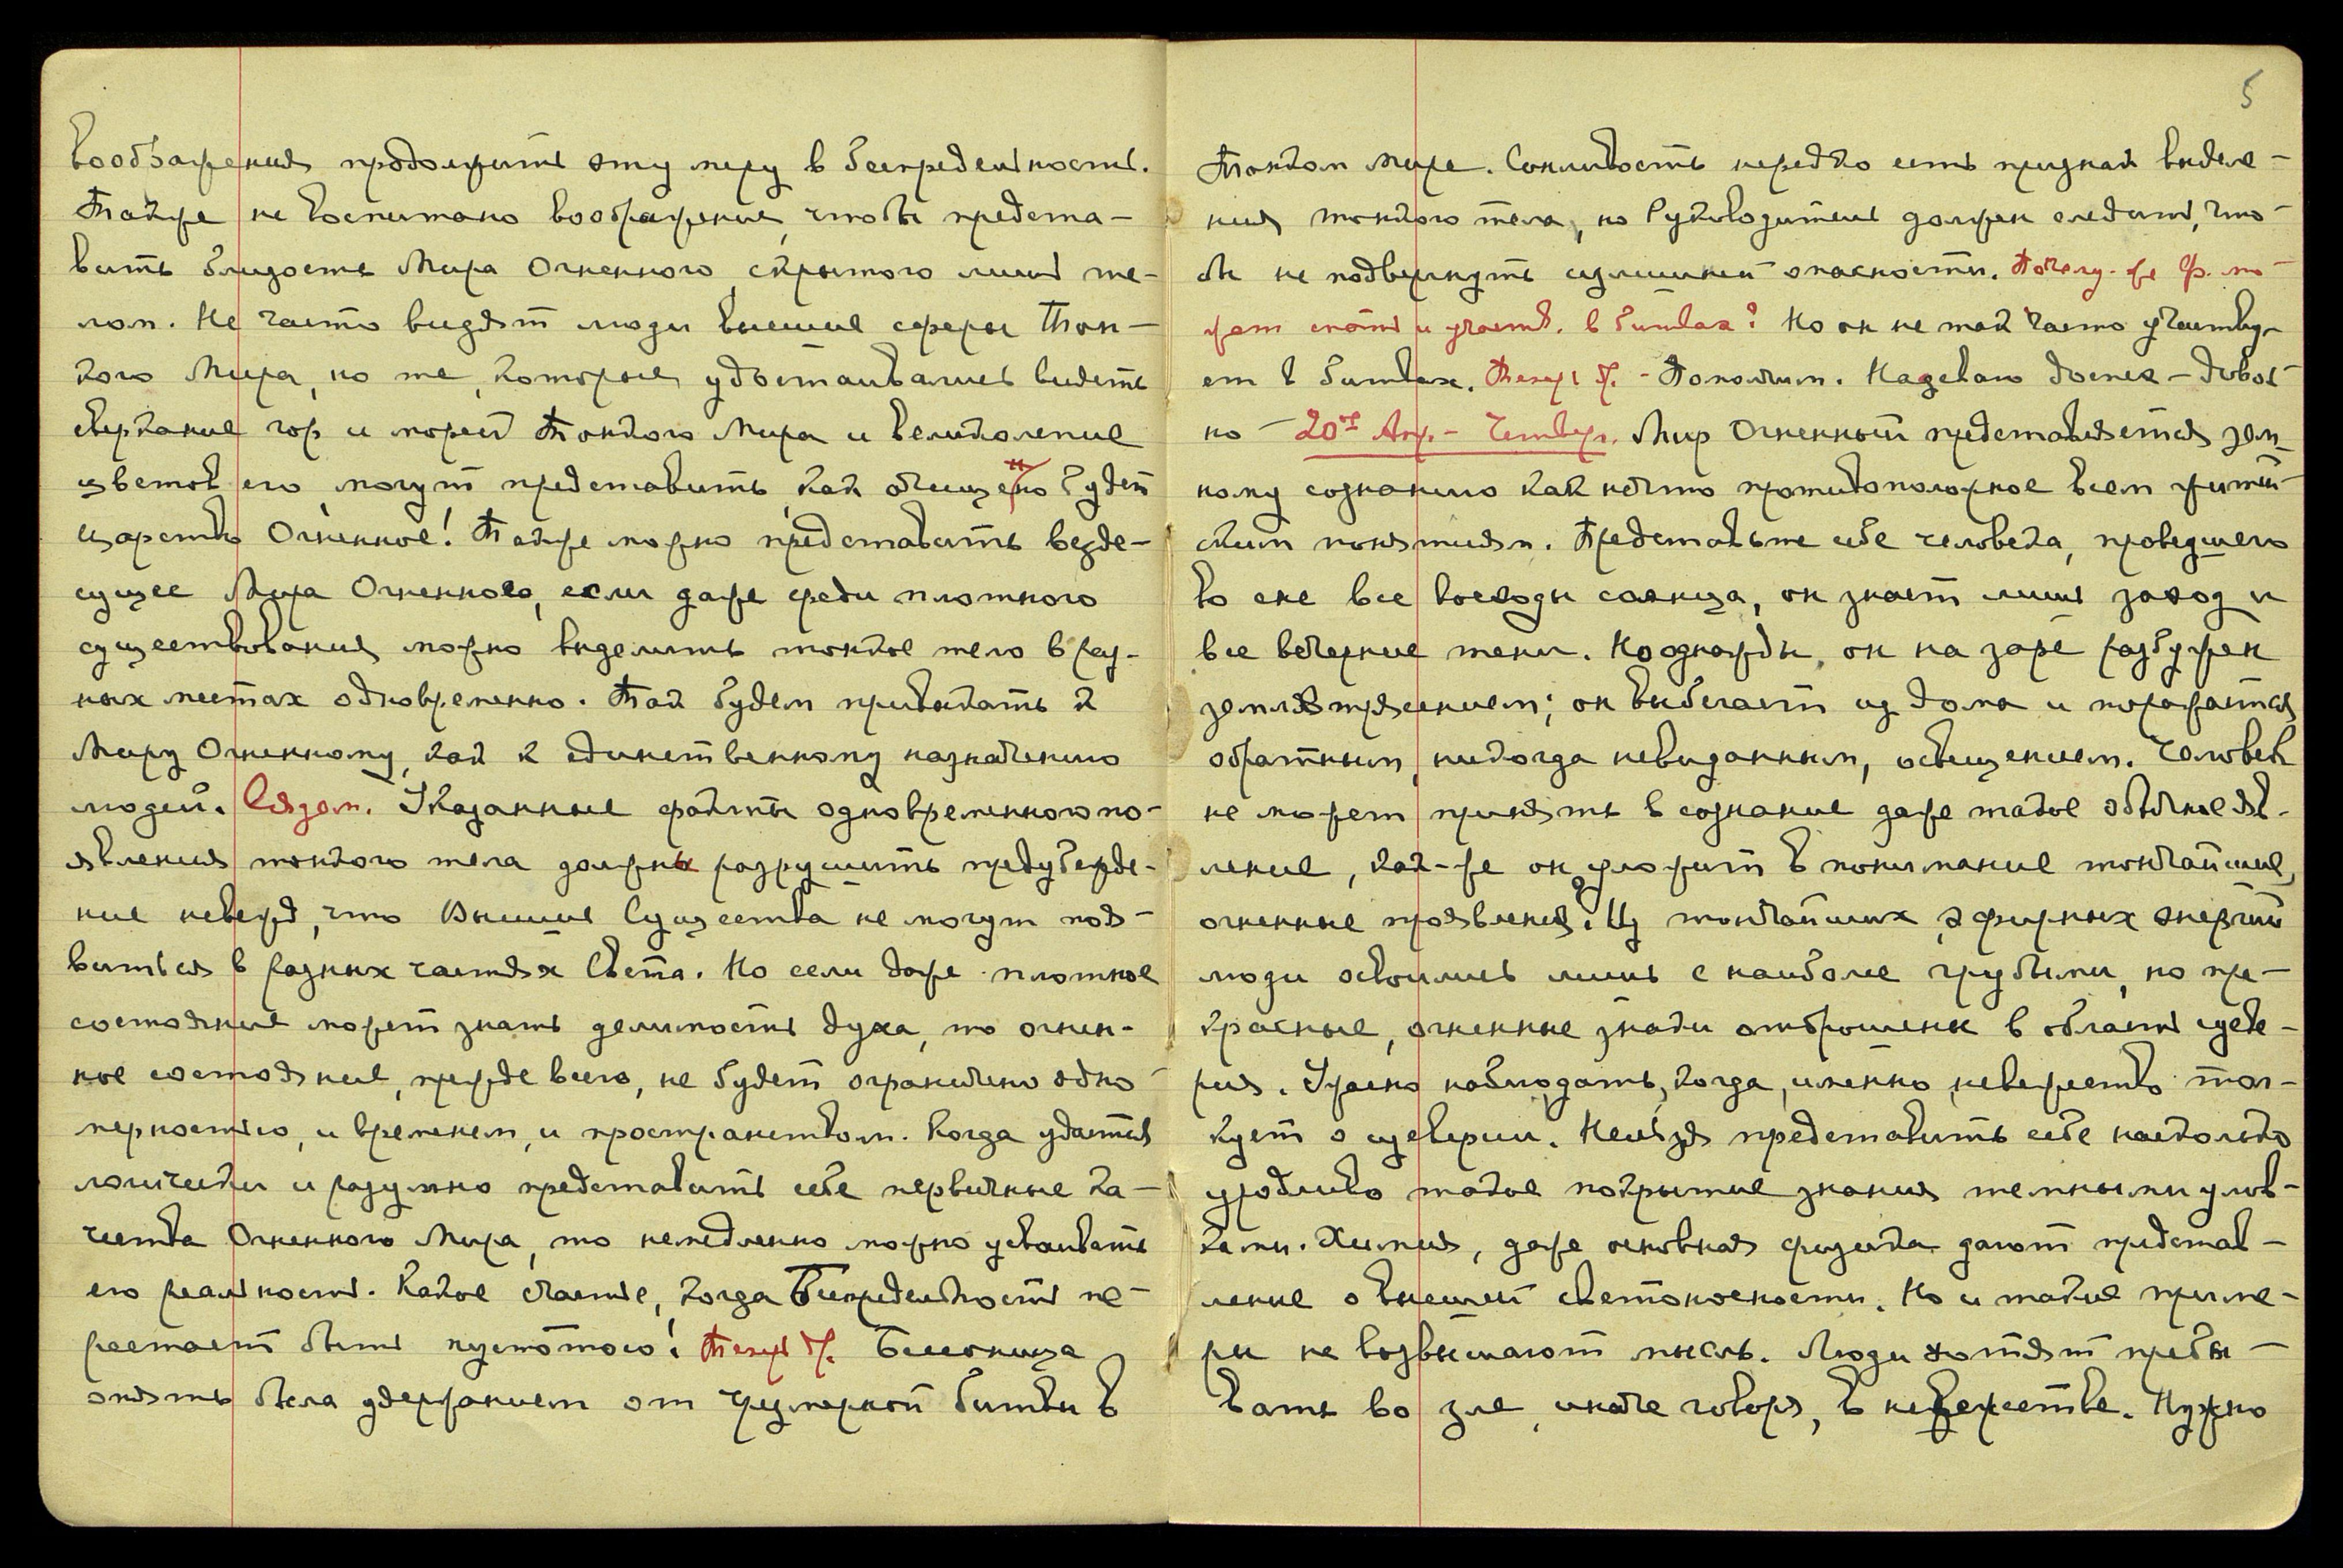 воображения продолжить эту меру в беспредельность.
Также не воспитано воображение, чтобы предста-
вить близость Мира Огненного, скрытого лишь те-
лом. Не часто видят люди высшие сферы Тон-
кого Мира, но те, которые удостаивались видеть
сверкание гор и морей Тонкого Мира и великолепие
цветов его, могут представить, как очищено будет
Царство Огненное! Также можно представить везде-
сущее Мира Огненного, если даже среди плотного
существования можно выделить тонкое тело в раз-
ных местах одновременно. Так будем привыкать к
Миру Огненному, как к единственному назначению
людей. Указанные факты одновременного по-
явления тонкого тела должны разрушить предубежде-
ние невежд, что Высшие Существа не могут поя-
виться в разных частях Света. Но если даже плотное
состояние может знать делимость духа, то огнен-
ное состояние, прежде всего, не будет ограничено одно-
мерностью, и временем, и пространством. Когда удастся
логически и разумно представить себе первичные ка-
чества Огненного Мира, то немедленно можно усваивать
его реальность. Какое счастье, когда Беспредельность пе-
рестает быть пустотою! Теперь Белоница
опять была удержанием от чрезмерной битвы в
5
Тонком Мире. Сонливость нередко есть признак выделе-
ния тонкого тела, но Руководитель должен следить, что-
бы не подвергнуть излишней опасности. Почему-же Ф. мо-
жет спать и участв. в битвах? Но он не так часто участву-
ет в битвах. Теперь Пополчим. Надеваю доспех – доволь-
но – 20ое Апр. – Четверг. Мир Огненный представляется зем-
ному сознанию как нечто противоположное всем житей-
ским понятиям. Представьте себе человека, проведшего
во сне все восходы солнца, он знает лишь заход и
все вечерние тени. Но однажды, он на заре разбужен
землятрясением; он выбегает из дома и поражается
обратным, никогда невиданным, освещением. Человек
не может принять в сознание даже такое обычное яв-
ление, как-же он уложит в понимание тончайшие,
огненные проявления? Из тончайших эфирных энергий
люди освоились лишь с наиболее грубыми, но пре-
красные, огненные знаки отброшены в область суеве-
рия. Ужасно наблюдать, когда, именно, невежество тол-
кует о суеверии. Нельзя представить себе насколько
уродливо такое покрытие знания темными улов-
ками. Химия, даже основная физика дают представ-
ление о высшей светоносности. Но и такие приме-
ры не возвышают мысль. Люди хотят пребы-
вать во зле, иначе говоря, в невежестве. Нужно